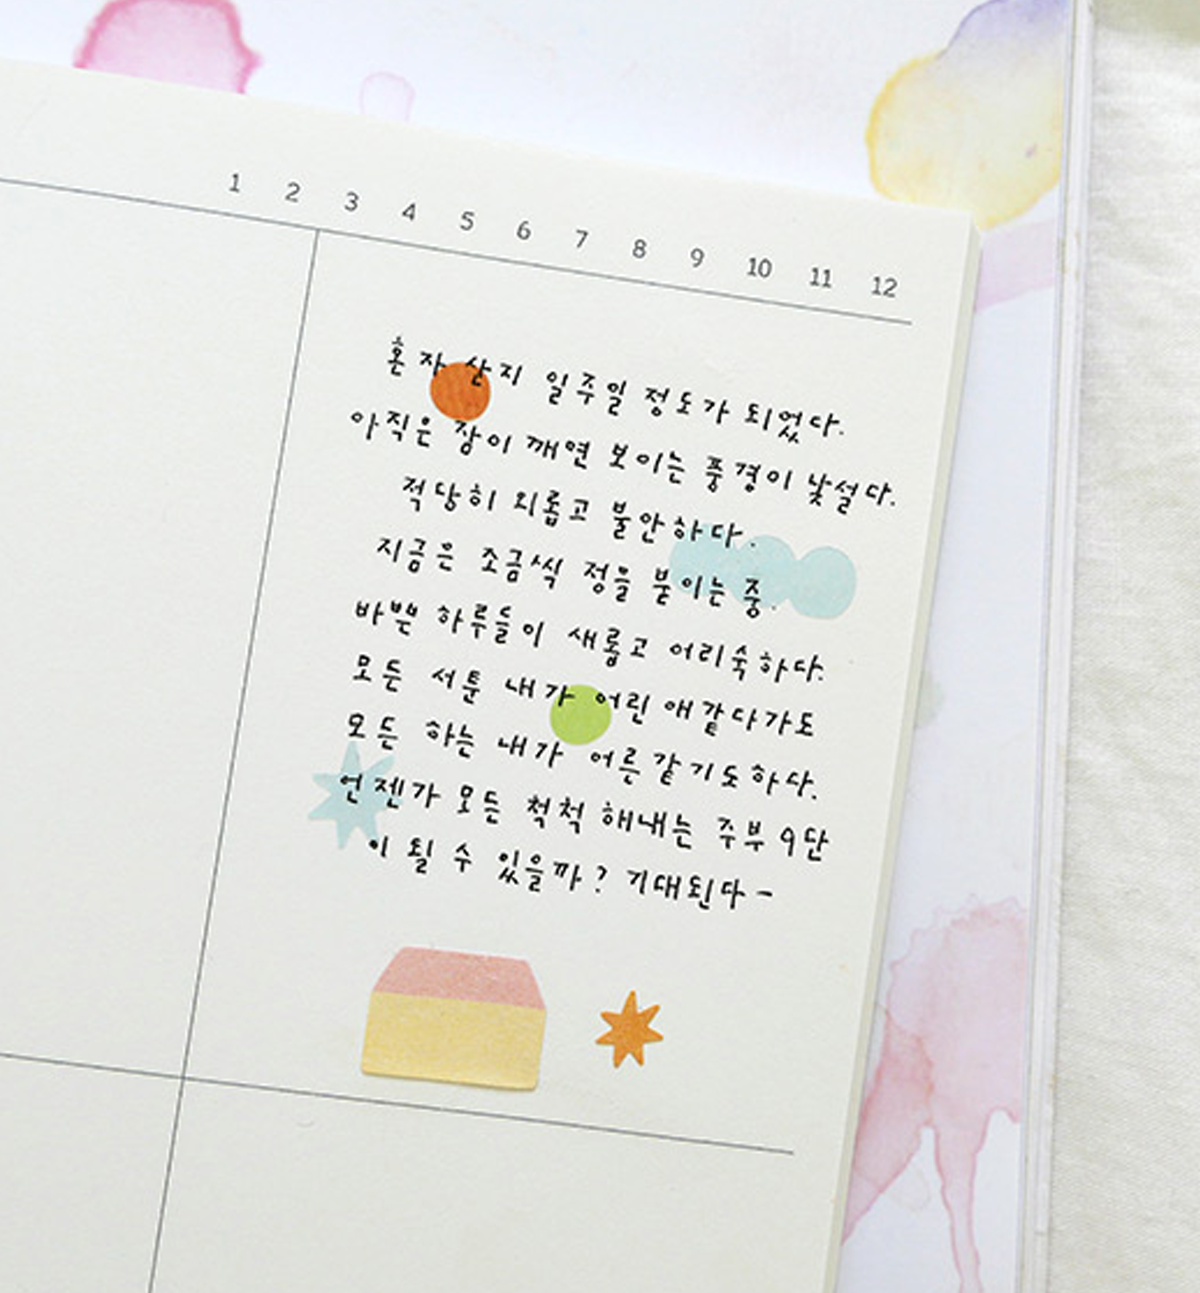 1 2 3 4 5 6 7 8 9 10 11 12
혼자 산지 일주일 정도가 되었다.
아직은 잠이 깨면 보이는 풍경이 낯설다.
적당히 외롭고 불안하다.
지금은 조금씩 정을 붙이는 중.
바쁜 하루들이 새롭고 어리숙하다.
모든 서툰 내가 어린 애같다가도
모든 하는 내가 어른 같기도하다.
언젠가 모든 척척 해내는 주부 9단
이 될 수 있을까? 기대된다-